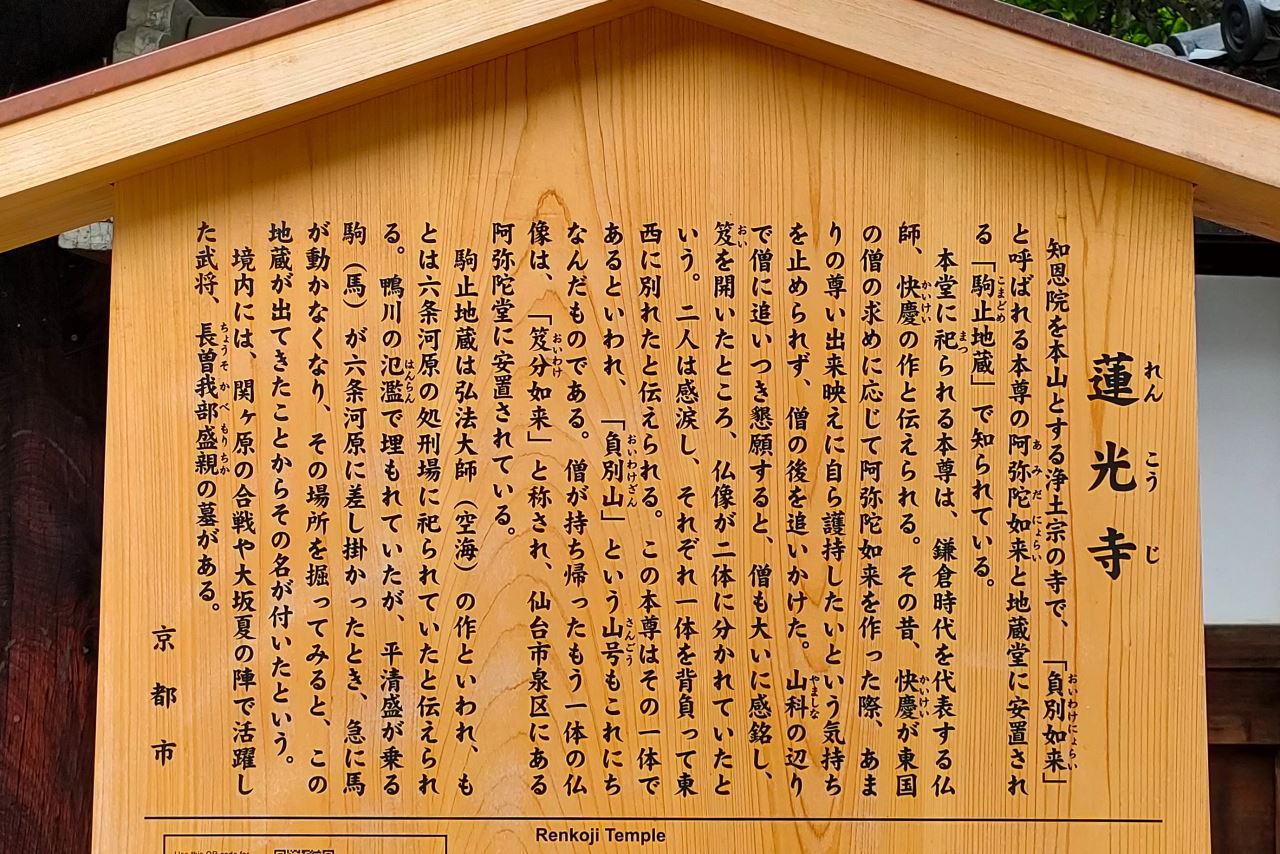 蓮光寺
れんこうじ
知恩院を本山とする浄土宗の寺で、「負別如来」
と呼ばれる本尊の阿弥陀如来と地蔵堂に安置され
る「駒止地蔵」で知られている。
本堂に祀られる本尊は、鎌倉時代を代表する仏
師、快慶の作と伝えられる。その昔、快慶が東国
の僧の求めに応じて阿弥陀如来を作った際、あま
りの尊い出来映えに自ら護持したいという気持ち
を止められず、僧の後を追いかけた。山科の辺り
で僧に追いつき懇願すると、僧も大いに感銘し、
笈を開いたところ、仏像が二体に分かれていたと
いう。二人は感涙し、それぞれ一体を背負って東
西に別れたと伝えられる。この本尊はその一体で
あるといわれ、「負別山」という山号もこれにち
なんだものである。僧が持ち帰ったもう一体の仏
像は、「笈分如来」と称され、仙台市泉区にある
阿弥陀堂に安置されている。
駒止地蔵は弘法大師（空海）の作といわれ、も
とは六条河原の処刑場に祀られていたと伝えられ
る。鴨川の氾濫で埋もれていたが、平清盛が乗る
駒（馬）が六条河原に差し掛かったとき、急に馬
が動かなくなり、その場所を掘ってみると、この
地蔵が出てきたことからその名が付いたという。
境内には、関ヶ原の合戦や大坂夏の陣で活躍し
た武将、長曽我部盛親の墓がある。
京都市
Renkoji Temple